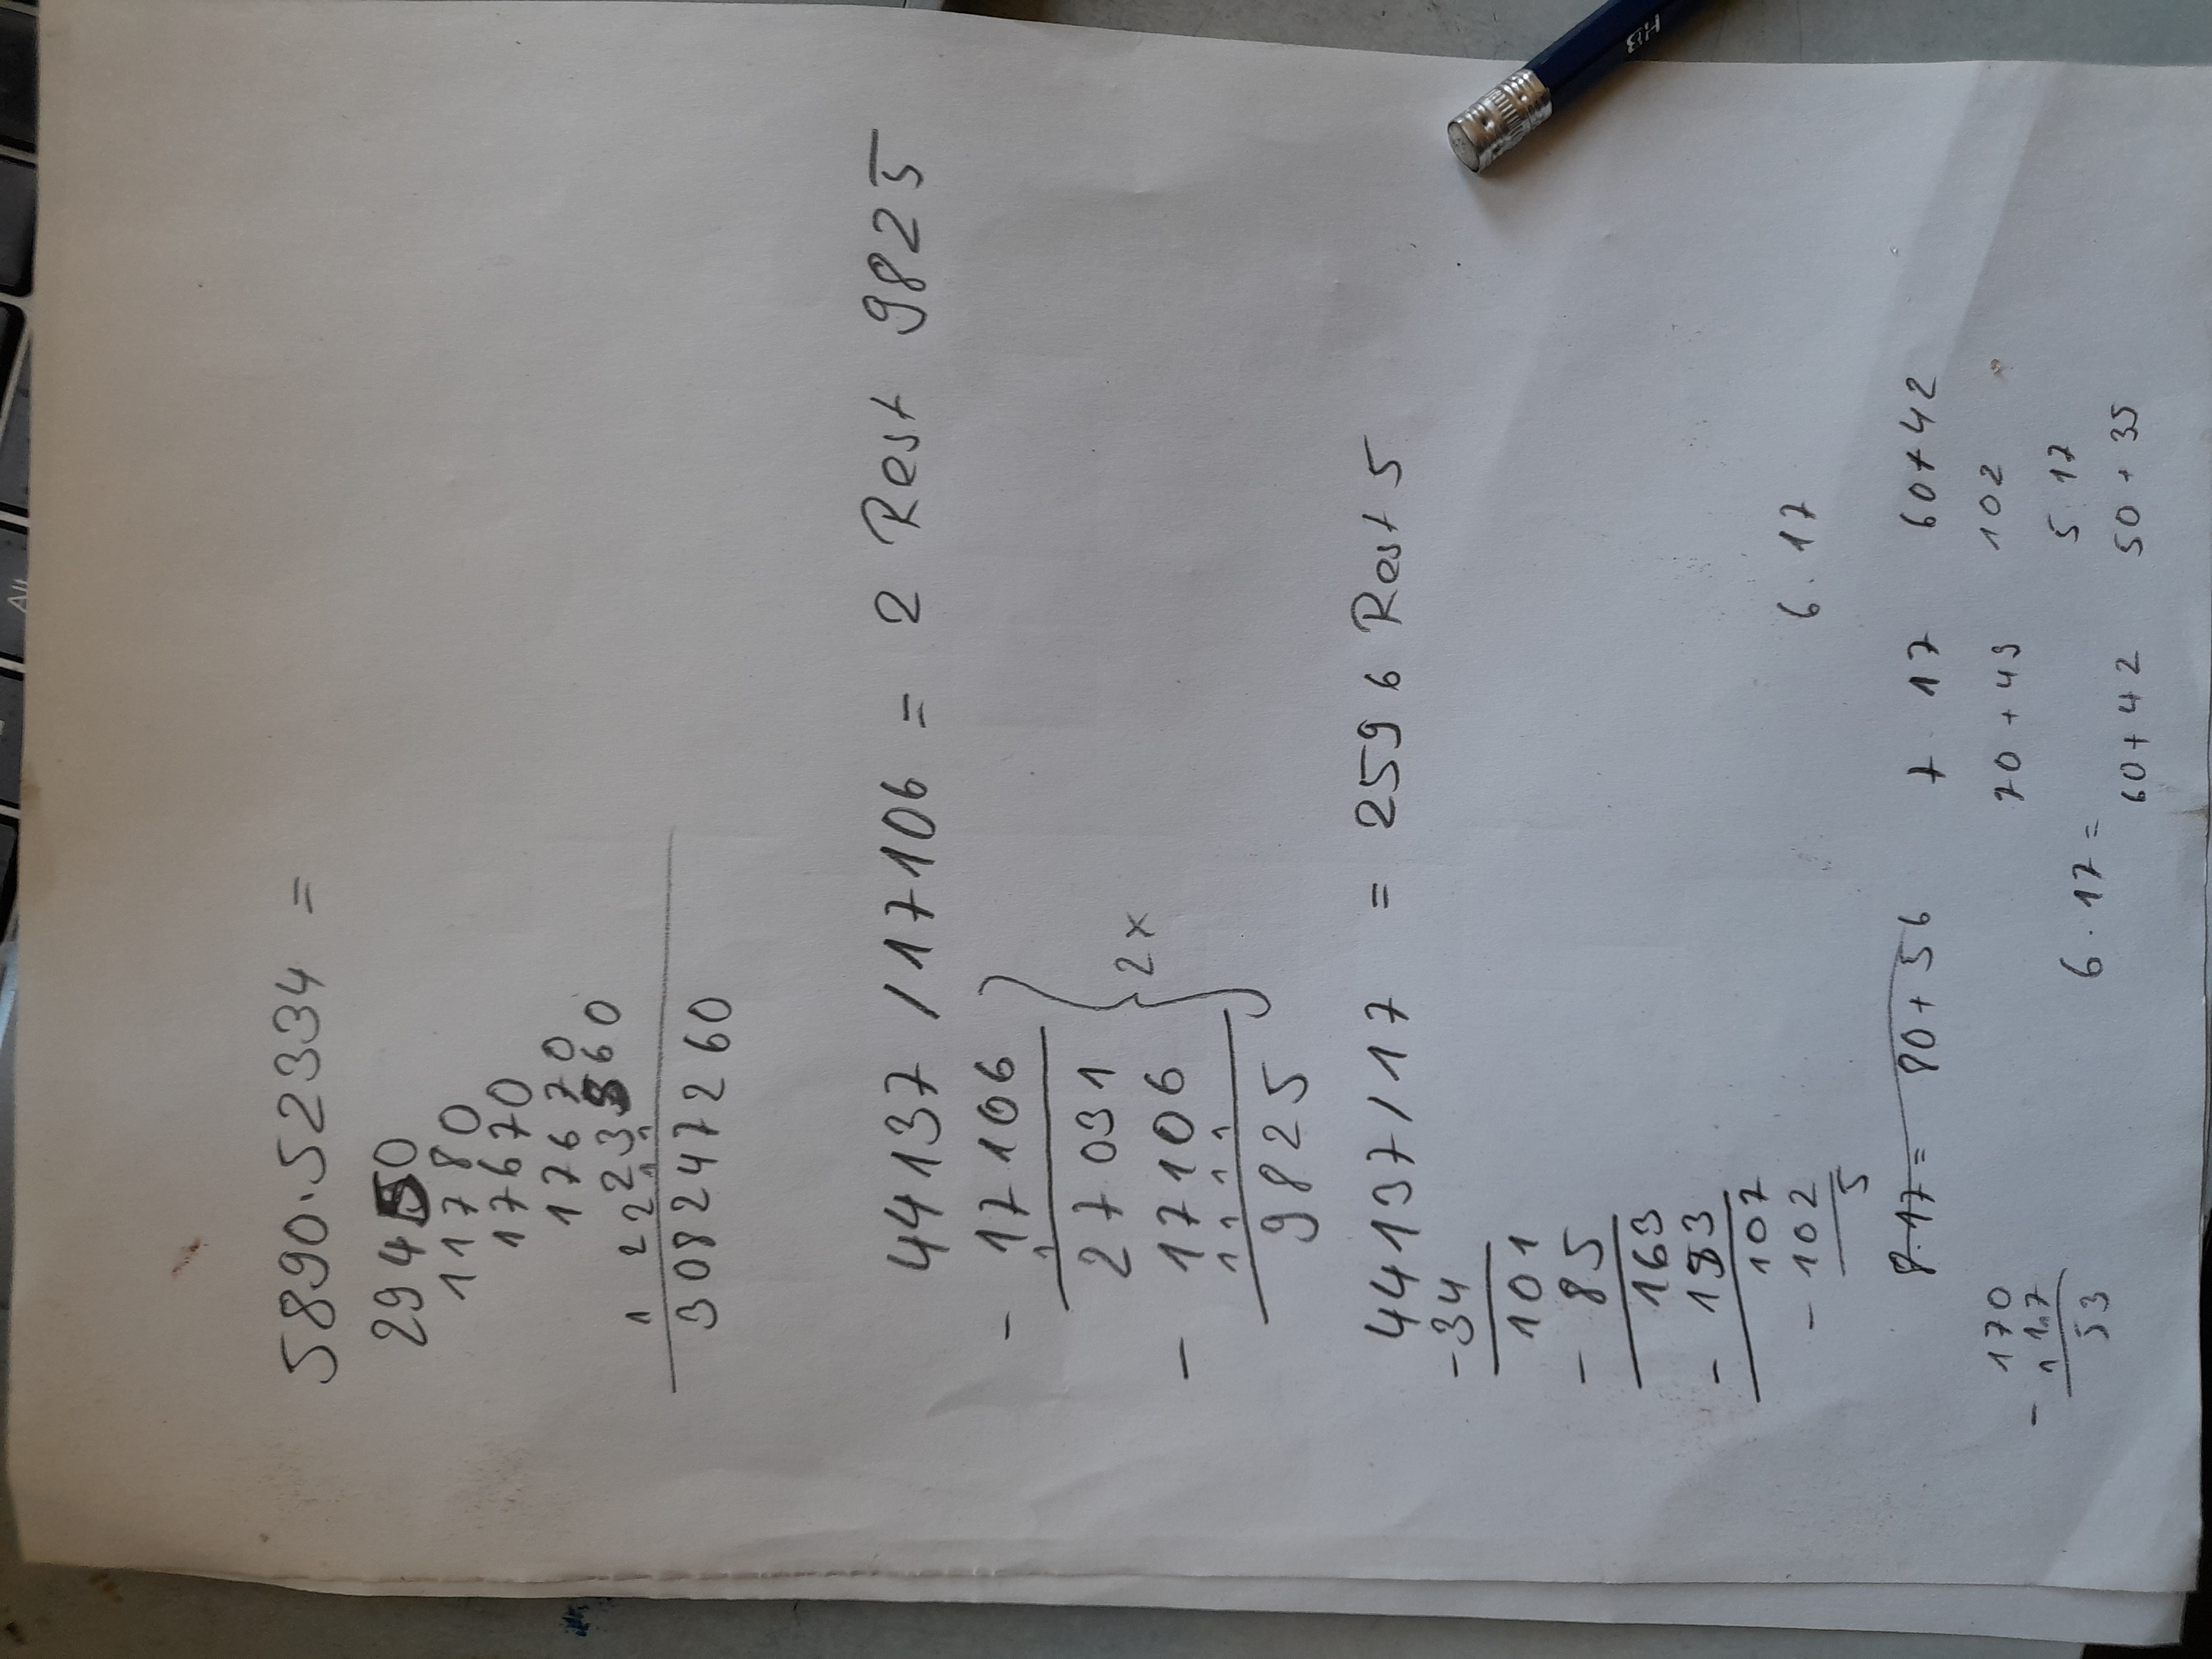 5890.52334 =
29450
11780
17670
17670
23560
1 2 2 2 1 1
308247260
44137 / 17106 = 2 Rest 9825
- 17106
1
27031 } 2x
- 17106
1 1 1 1
9825
44137 / 17 = 2596 Rest 5
-34
101
- 85
163
- 153
107
- 102
5
6.17
8.17= 80+56
7.17
60+42
70+49
102
170
- 117
1 1
53
6.17=
60+42
5.17
50+35
HB